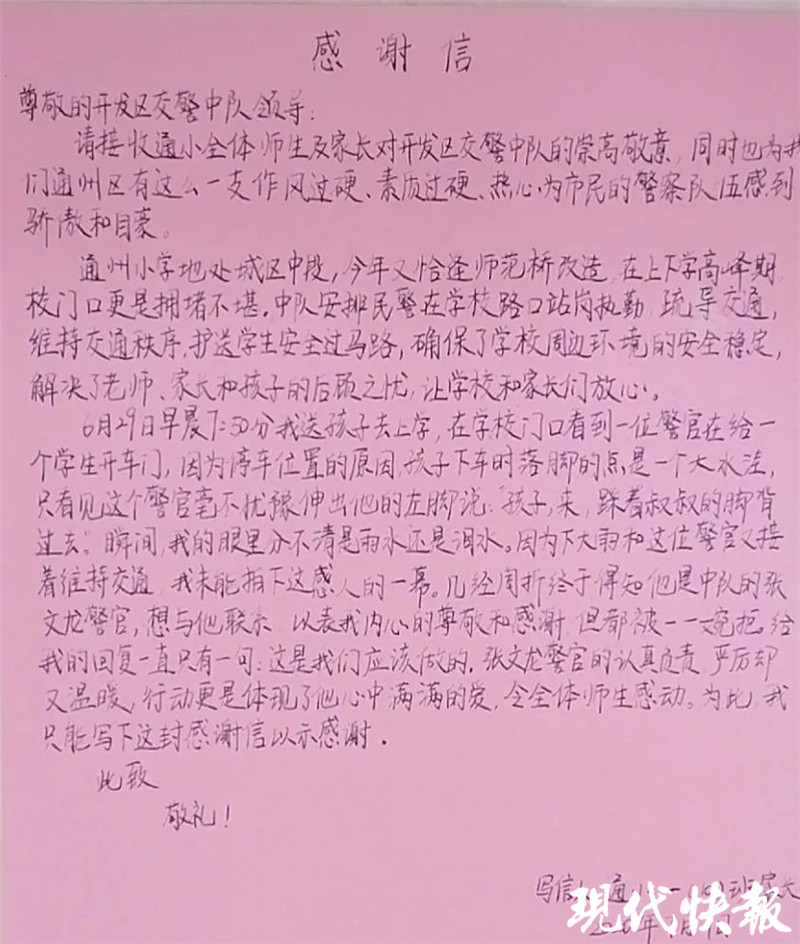 感谢信
尊敬的开发区交警中队领导:
请接收通小全体师生及家长对开发区交警中队的崇高敬意,同时也为我
们通州区有这么一支作风过硬、素质过硬、热心为市民的警察队伍感到
骄傲和自豪。
通州小学地处城区中段,今年又恰逢师范桥改造,在上下学高峰期,
校门口更是拥堵不堪.中队安排民警在学校路口站岗执勤,疏导交通,
维持交通秩序,护送学生安全过马路,确保了学校周边环境的安全稳定,
解决了老师、家长和孩子的后顾之忧,让学校和家长们放心。
6月29日早晨7:50分我送孩子去上学,在学校门口看到一位警官在给一
个学生开车门,因为停车位置的原因,孩子下车时落脚的点是一个大水洼,
只看见这个警官毫不忧豫伸出他的左脚说:“孩子,来,踩着叔叔的脚背
过去。”瞬间,我的眼里分不清是雨水还是泪水。因为下大雨和这位警官又接
着维持交通,我未能拍下这感人的一幕。几经周折终于得知他是中队的张
文龙警官,想与他联系,以表我内心的尊敬和感谢,但都被一一婉拒,给
我的回复一直只有一句:这是我们应该做的.张文龙警官的认真负责,严厉却
又温暖,行动更是体现了他心中满满的爱,令全体师生感动。为此,我
只能写下这封感谢信以示感谢.
此致
敬礼!
写信 通小一 班家长
现代快报